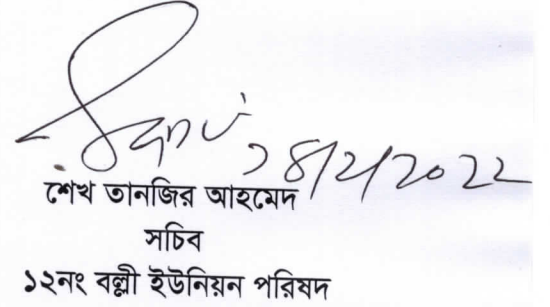 28/2/2022
শেখ তানজির আহমেদ
সচিব
১২নং বল্লী ইউনিয়ন পরিষদ